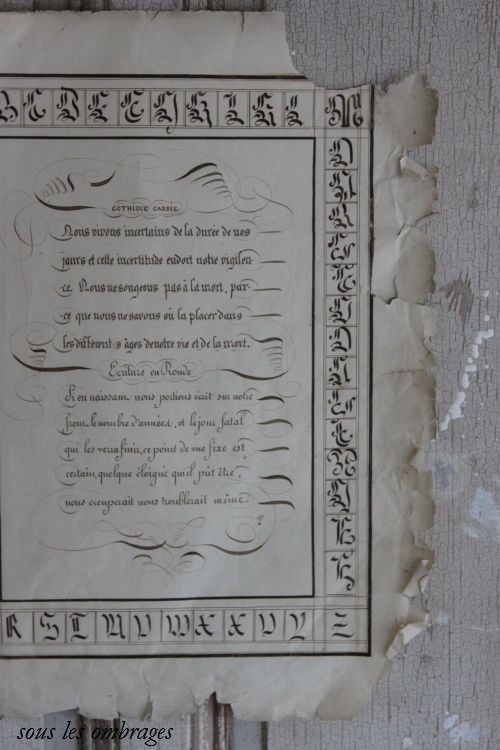 B C D E F G H I K L M
GOTHIQUE CARRÉE.
Nous vivons incertains de la durée de nos
jours et cette incertitude endort notre vigilen-
ce. Nous ne songeons pas à la mort, par-
ce que nous ne savons où la placer dans
les différents âges de notre vie et de la mort.
Ecriture en Ronde
Si en naissant nous portions écrit sur notre
front le nombre d'années, et le jour fatal
qui les verra finir, ce point de vue fixe est
certain, quelque éloigné qu'il pût être,
nous occuperait nous troublerait même.
R S T U V W X X U Y Z
sous les ombrages